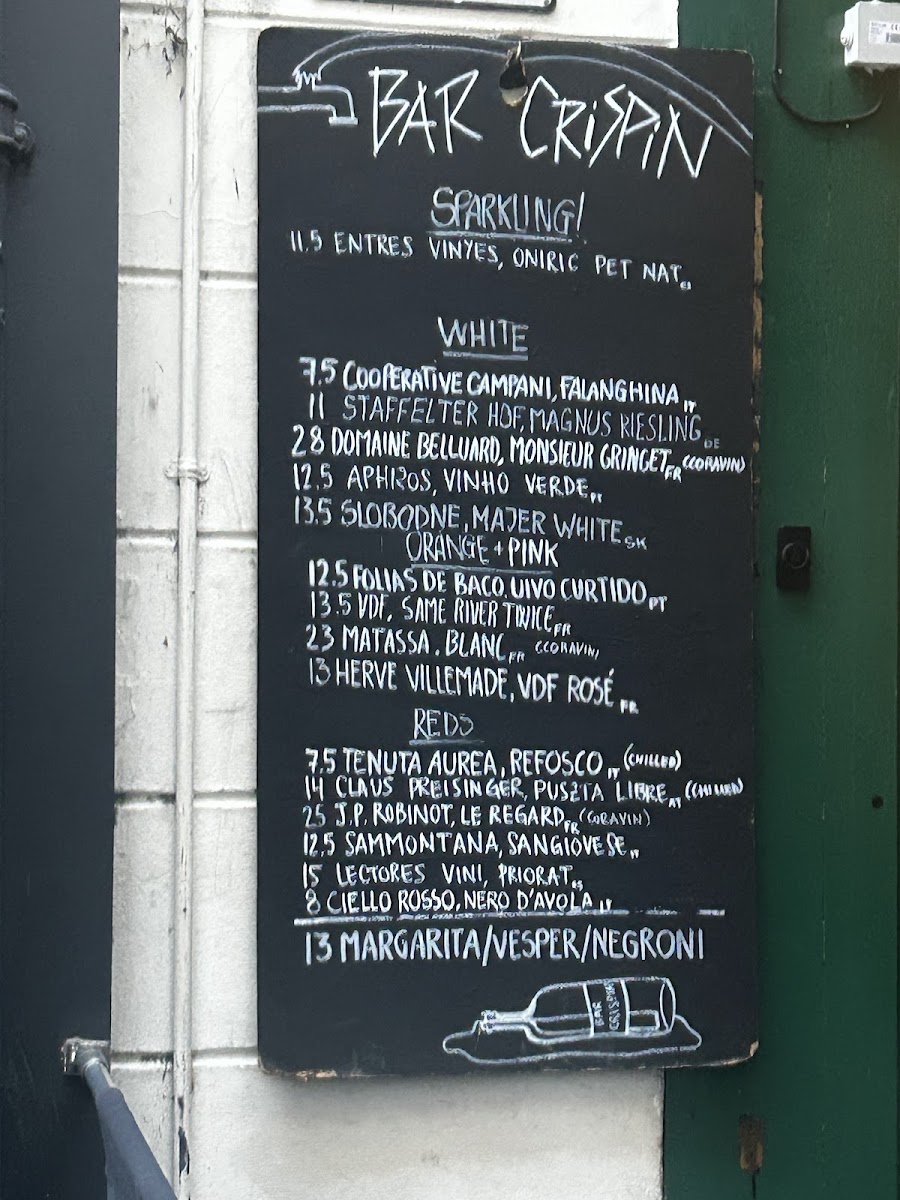 BAR CRISPIN
SPARKLING!
11.5 ENTRES VINYES, ONIRIC PET NAT ES
WHITE
7.5 COOPERATIVE CAMPANI, FALANGHINA IT
11 STAFFELTER HOF, MAGNUS RIESLING DE
28 DOMAINE BELLUARD, MONSIEUR GRINGET FR (CORAVIN)
12.5 APHROS, VINHO VERDE PT
13.5 SLOBODNE, MAJER WHITE SK
ORANGE + PINK
12.5 FOLIAS DE BACO. UIVO CURTIDO PT
13.5 VDF, SAME RIVER TWICE FR
23 MATASSA. BLANC FR (CORAVIN)
13 HERVE VILLEMADE, VDF ROSÉ FR
REDS
7.5 TENUTA AUREA, REFOSCO IT (CHILLED)
14 CLAUS PREISINGER, PUSZTA LIBRE AT (CHILLED)
25 J.P. ROBINOT, LE REGARD FR (CORAVIN)
12.5 SAMMONTANA, SANGIOVESE IT
15 LECTORES VINI, PRIORAT ES
8 CIELLO ROSSO, NERO D'AVOLA IT
13 MARGARITA/VESPER/NEGRONI
BAR
CRISPIN